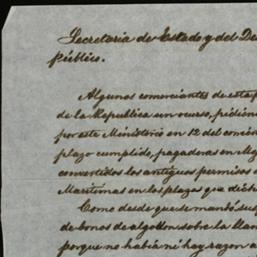 Secretaria de Estado y del De
Público.
Algunos comerciantes de esta p
de la Republica un ocurso, pidien
por este Ministerio en 12 del
plazo cumplido, pagaderas en
convertidos los antiguos permisos
Maritimas en los plazos que dich
Como desde que se mandó sus
de bonos de algodon sobre la
porque no habia ni hay razon a